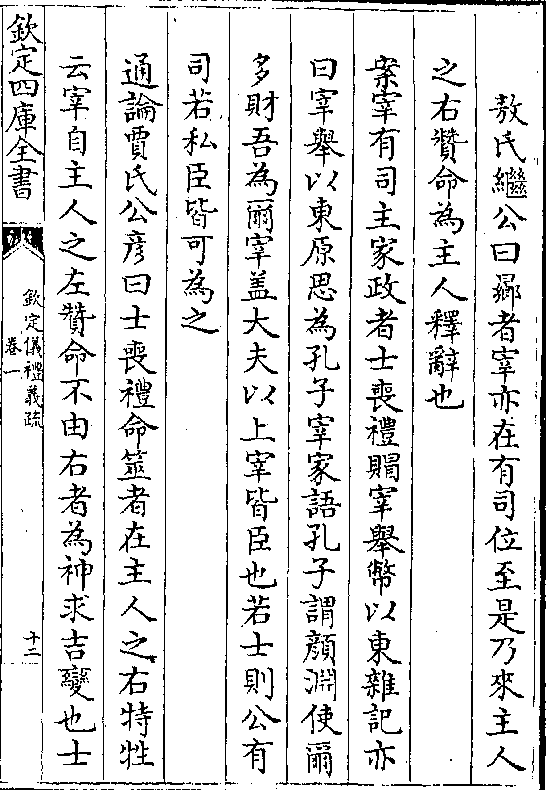 敖氏繼公曰鄉者宰亦在有司位至是乃來主人
之右贊命為主人釋辭也
案宰有司主家政者士喪禮賵宰舉幣以東雜記亦
曰宰舉以東原思為孔子宰家語孔子謂顔淵使爾
多財吾為爾宰盖大夫以上宰皆臣也若士則公有
司若私臣皆可為之
通論賈氏公彦曰士喪禮命筮者在主人之右特牲
云宰自主人之左贊命不由右者為神求吉變也士
欽定四庫全書
欽定儀禮義疏
卷一
十二